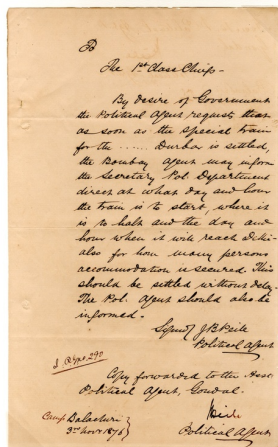 To
The 1st Class Chiefs-
By desire of Government
the Political Agent requests that
as soon as the special train
for the ...... Durbar is settled,
the Bombay Agent may inform
the Secretary Pol. Department
direct at what day and hour
the train is to start, where it
is to halt and the day and
hour when it will reach Delhi-
also for how many persons
accommodation is secured. This
should be settled without delay.
The Pol. Agent should also be
informed.-
Signed J B Peile
Political Agent
Copy forwarded to the Asst.
Political Agent, Gondal.
Camp Balachuri
3rd Novr 1876
JBPeile
Political Agent